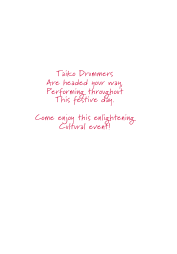 Taiko Drummers
Are headed your way.
Performing throughout
This festive day.
Come enjoy this enlightening
Cultural event!